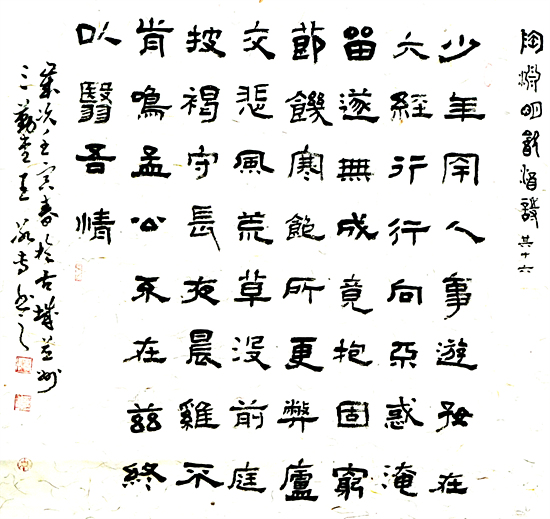 陶淵明飲酒詩 其十六
少年罕人事遊好在
六經行行向不惑淹
留遂無成竟抱固窮
節饑寒飽所更弊廬
交悲風荒草沒前庭
披褐守長夜晨雞不
肯鳴孟公不在茲終
以翳吾情
歲次壬寅春於古城並州
三勤堂王